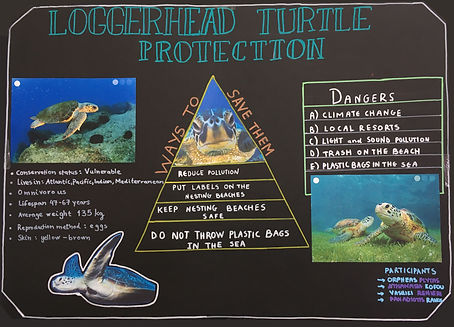 LOGGERHEAD TURTLE
PROTECTION
WAYS TO SAVE THEM
REDUCE POLLUTION
PUT LABELS ON THE
NESTING BEACHES
KEEP NESTING BEACHES
SAFE
DO NOT THROW PLASTIC BAGS
IN THE SEA
DANGERS
A) CLIMATE CHANGE
B) LOCAL RESORTS
C) LIGHT and SOUND POLLUTION
D) TRASH ON THE BEACH
E) PLASTIC BAGS IN THE SEA
• Conservation status: Vulnerable
• Lives in: Atlantic, Pacific, Indian, Mediterranean
• Omnivorous
• Lifespan 47-67 years
• Average weight 135 kg
• Reproduction method: eggs
• Skin: yellow-brown
PARTICIPANTS
→ ORPHEAS
→ ATHANASIA
→ VASILIKI
→ PANAGIOTIS